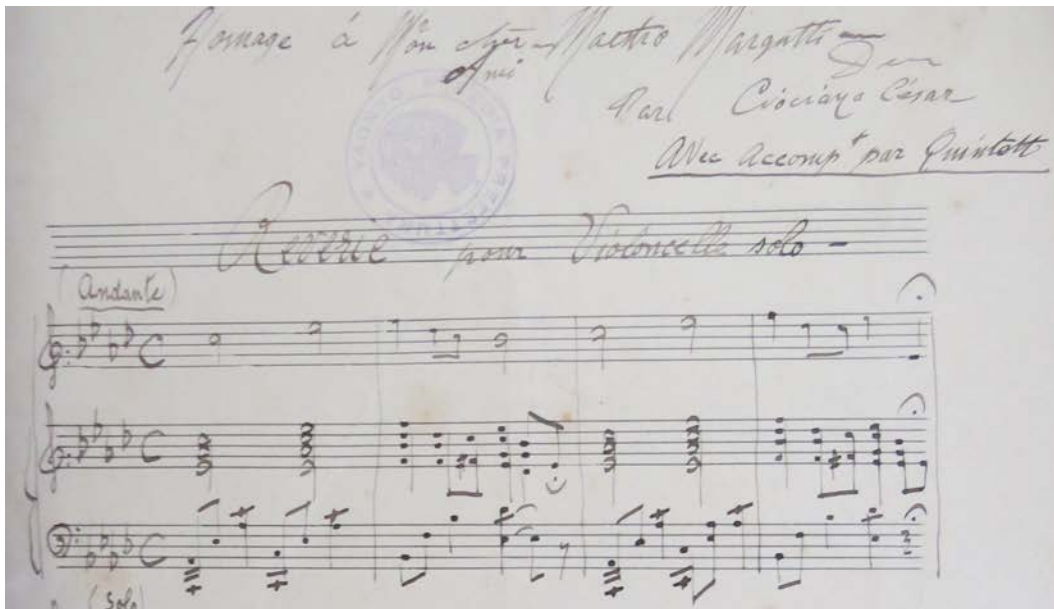 Homage á Mon cher Maestro Margutti
Ami
Par Ciociano César
Avec Accomp^t par Quintett
Reverie pour Violoncelle solo -
(Andante)
(Solo)